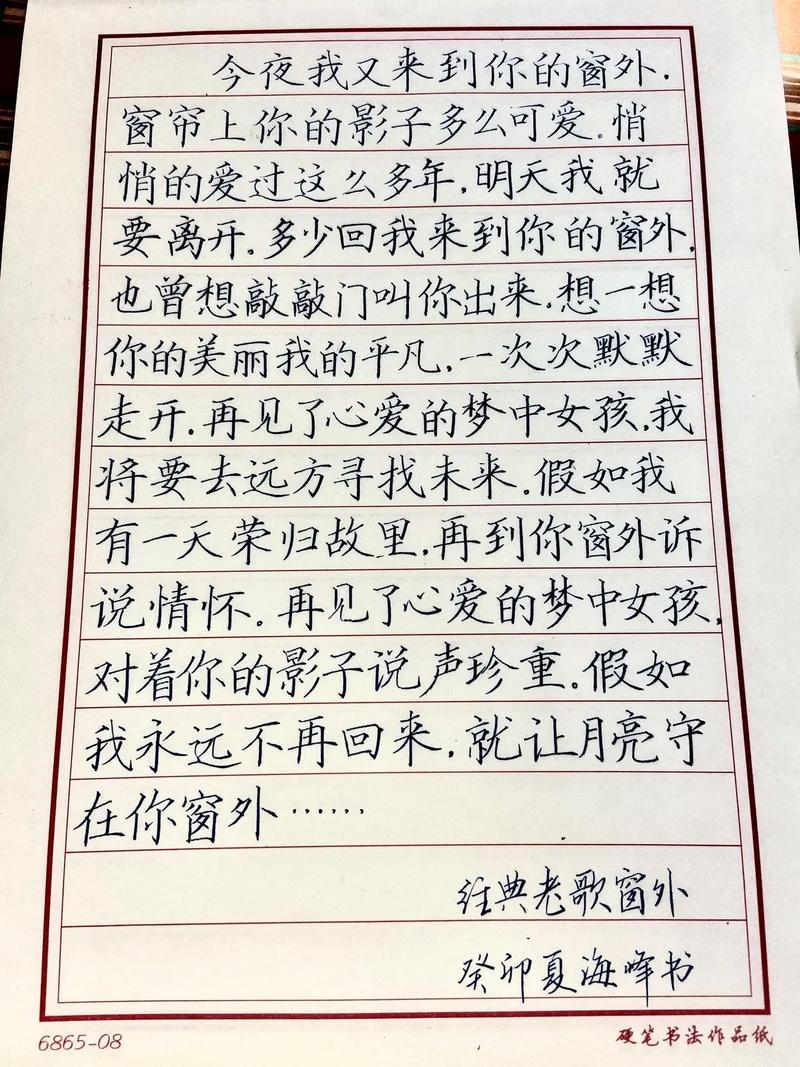 今夜我又来到你的窗外.
窗帘上你的影子多么可爱。悄
悄的爱过这么多年,明天我就
要离开.多少回我来到你的窗外,
也曾想敲敲门叫你出来.想一想
你的美丽我的平凡,一次次默默
走开.再见了心爱的梦中女孩,我
将要去远方寻找未来。假如我
有一天荣归故里,再到你窗外诉
说情怀。再见了心爱的梦中女孩,
对着你的影子说声珍重。假如
我永远不再回来,就让月亮守
在你窗外……
经典老歌窗外
癸卯夏海峰书
6865-08
硬笔书法作品纸